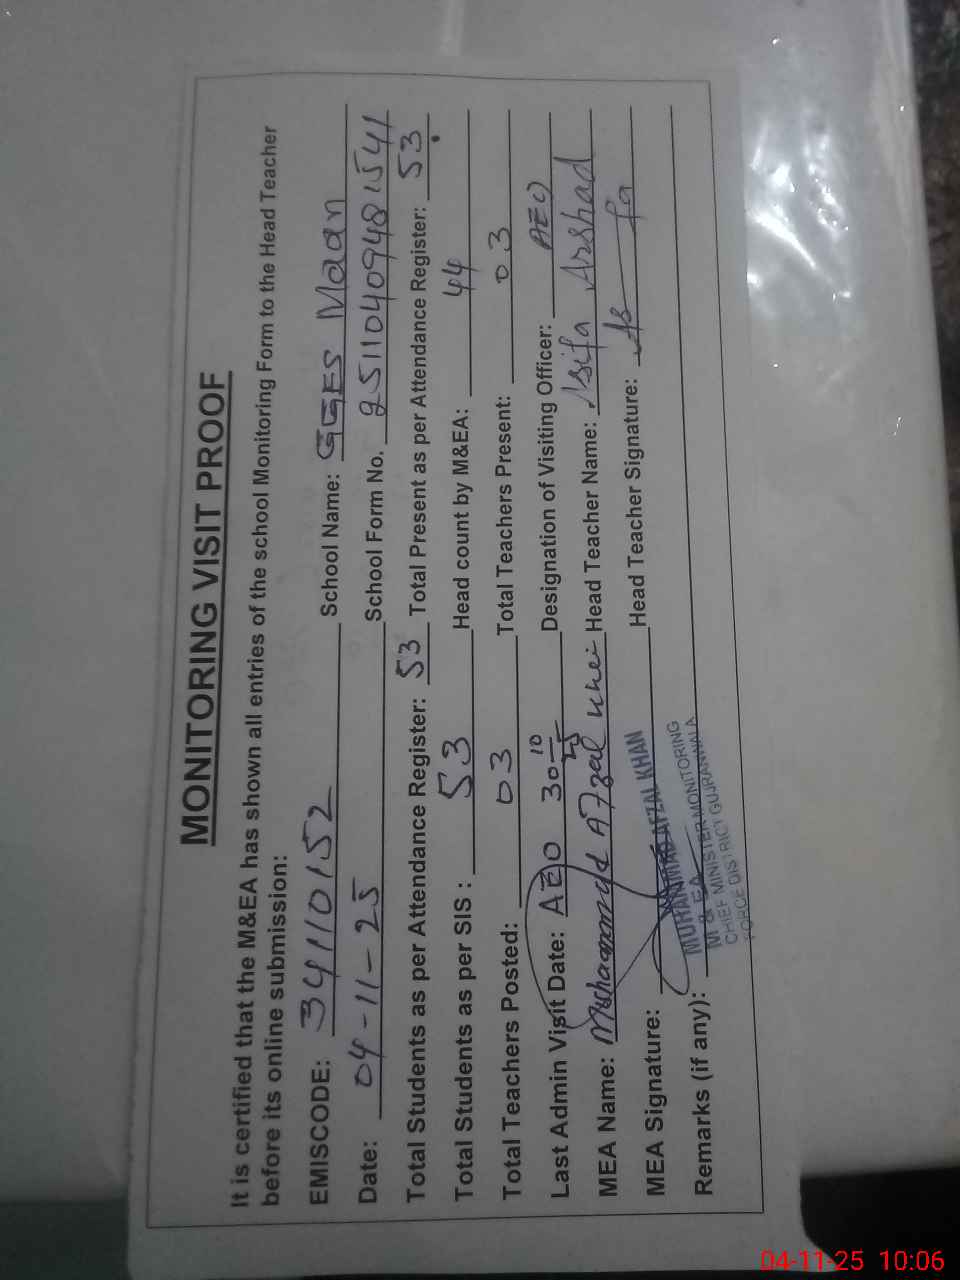 MONITORING VISIT PROOF
It is certified that the M&EA has shown all entries of the school Monitoring Form to the Head Teacher
before its online submission:
EMISCODE: 34110152 School Name: GGES Maan
Date: 04-11-25 School Form No. 25110409481541
Total Students as per Attendance Register: 53 Total Present as per Attendance Register: 53
Total Students as per SIS : 53 Head count by M&EA: 44
Total Teachers Posted: 03 Total Teachers Present: 03
Last Admin Visit Date: AEO 30 10 25 Designation of Visiting Officer: AEO
MEA Name: Muhammad Afzal Head Teacher Name: Arshad
MEA Signature: Head Teacher Signature:
MUHAMMAD AFZAL KHAN
M & EA
CHIEF MINISTER MONITORING
FORCE DISTRICT GUJRANWALA
Remarks (if any):
04-11-25 10:06